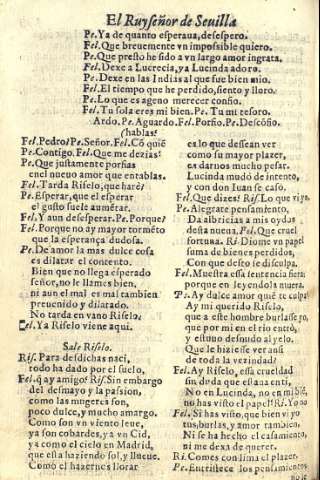 El Ruyseñor de Seuilla
Pe. Ya de quanto esperaua, desespero.
Fel. Que breuemente vn impossible quiero.
Pe. Que presto he sido a vn largo amor ingrata.
Fel. Dexe a Lucrecia, ya Lucinda adoro.
Pe. Dexe en las Indias al que fue bien mio.
Fel. El tiempo que he perdido, siento y lloro.
Pe. Lo que es ageno merecer confio.
Fel. Tu sola eres mi bien. Pe. Tu mi tesoro.
Ardo. Pe. Aguardo. Fel. Porfio. Pe. Desconfio.
(hablas?
Fel. Pedro? Pe. Señor. Fel. Cõ quiẽ
Pe. Contigo. Fel. Que me dezias?
Pe. Que justamente porfias
en el nueuo amor que entablas.
Fel. Tarda Riselo, que harè?
Pe. Esperar, que el esperar
el gusto suele aumẽtar.
Fel. Y aun desesperar. Pe. Porque?
Fel. Porque no ay mayor tormẽto
que la esperança dudosa.
Pe. De amor la mas dulce cosa
es dilatar el contento.
Bien que no llega esperado
señor, no le llames bien,
ni aun el mal es mal tambien
preuenido y dilatado.
No tarda en vano Riselo.
Fel. Ya Riselo viene aqui.
Sale Riselo.
Ris. Para desdichas naci,
rodo ha dado por el suelo,
Fel. q̃ ay amigo? Ris. Sin embargo
del desmayo y la passion,
como las mugeres son,
poco dulce, y mucho amargo.
Como son vn viento leue,
ya son cobardes, ya vn Cid,
y a como el cielo en Madrid,
que està haziendo sol, y llueue.
Como el hazernos llorar
es lo que dessean ver
como su mayor plazer,
es darnos mucho pesar.
Lucinda mudó de intento,
y con don Iuan se casò.
Fel. Que dizes? Ris. Lo que vi yo.
Pe. Alegrate pensamiento,
Da albricias a mis oydos
desta nueua. Fel. Que cruel
fortuna. Ri. Diome vn papel
suma de bienes perdidos,
Con que desto se disculpa.
Fel. Muestra essa sentencia fiera;
porque en leyendola muera.
Pe. Ay dulce amor que te culpa!
Ay mi querido Riselo,
que a este hombre burlasse yo,
que por mi en el rio entrò,
y estuuo desnudo al yelo.
Que le hiziesse ver ansi
de toda la verindad!
Fel. Ay Riselo, essa crueldad
sin duda que estaua en ti,
No en Lucinda, no en mi biẽ,
no has visto el papel? Ri. Yo no
Fel. Si has visto, que bien viyo
tus burlas, y amor tambien.
Ni se ha hecho el casamiento,
ni me dexa de querer.
Ri. Comes con lima el plazer.
Pe. Entristece los pensamientos